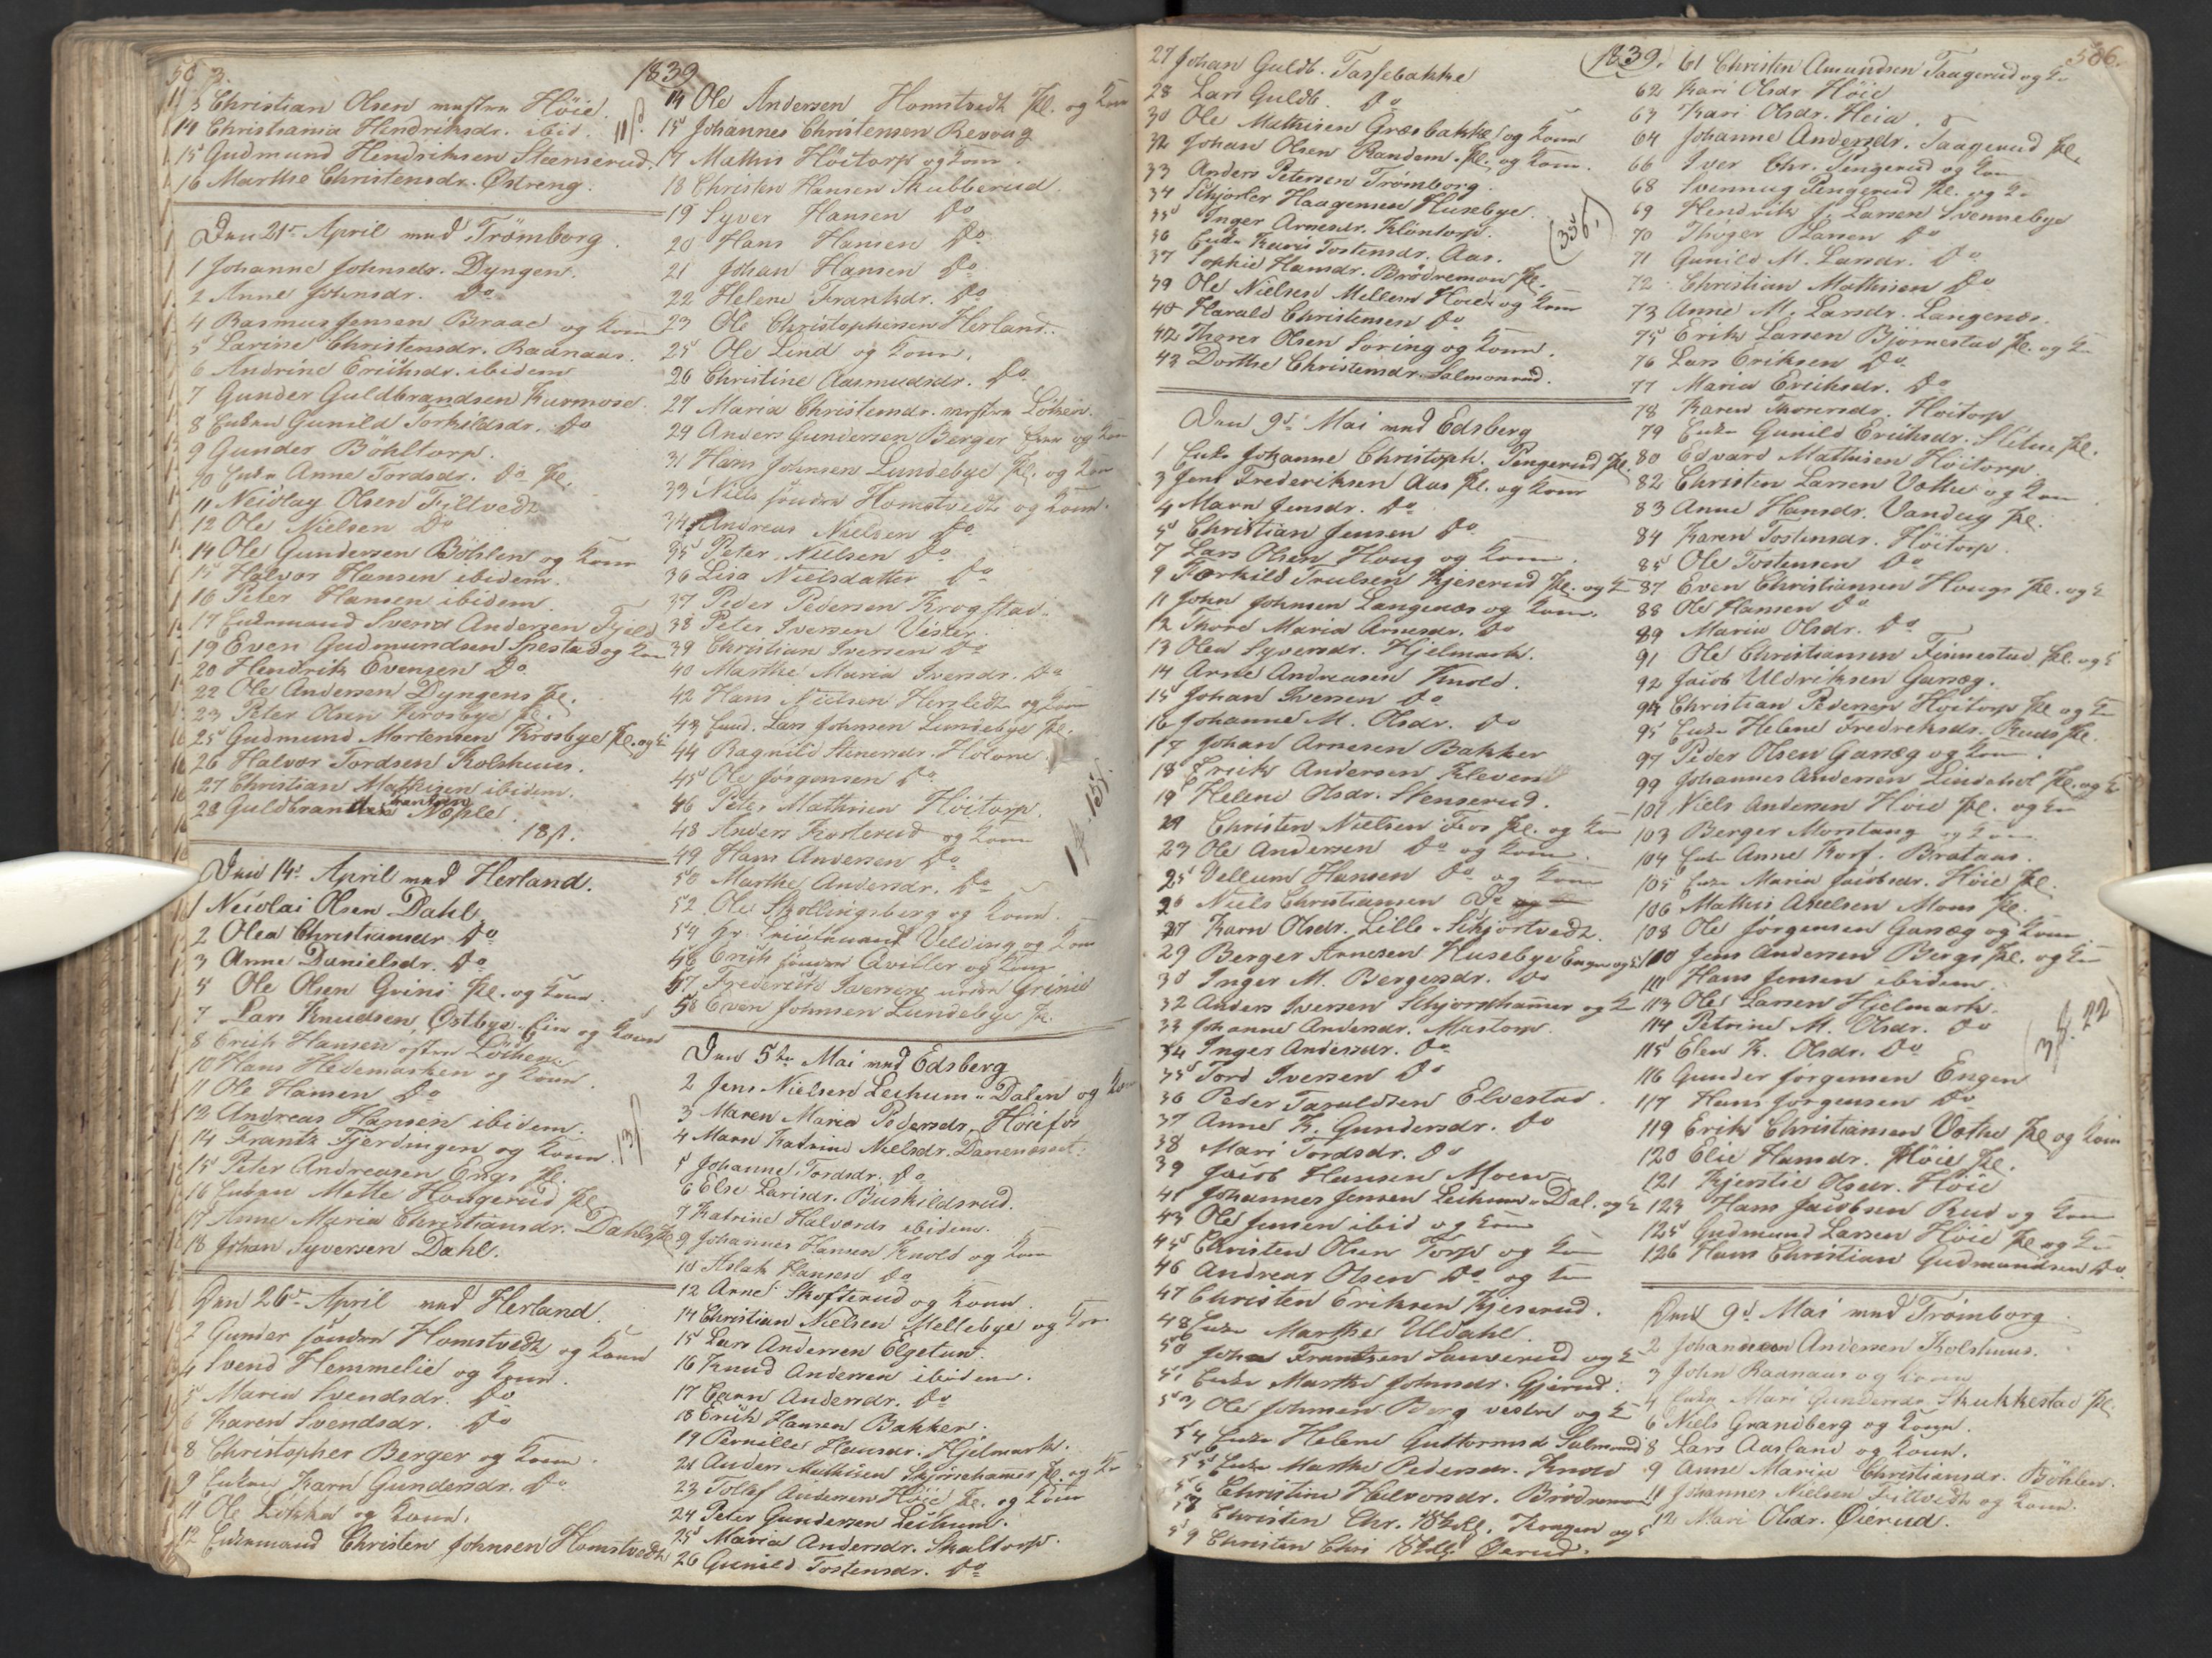 1839
13 Christian Olsen Høie.
14 Christiania Hendriksdr. ibid. 11ß
15 Gudmund Hendriksen Steenserud.
16 Marthe Christensdr. Østreng.
Den 21de April ved Trømborg.
1 Johanne Johnsdr. Dyngen.
2 Anne Johnsdr. Do
4 Rasmus Jensen Braae og Kone
5 Larine Christensdr. Raanaas.
6 Andrine Eriksdr. ibidem
7 Gunder Guldbrandsen Kurmose.
8 Enken Gunild Torkildsdr. Do
9 Gunder Bøhltorp.
10 Enke Anne Tordsdr. Do Pl.
11 Neidlay Olsen Filtvedt
12 Ole Nielsen Do
14 Ole Gundersen Bøhlen og Kone
15 Halvor Hansen ibidem.
16 Peter Hansen ibidem.
17 Enkemand Svend Andersen Fjeld
19 Even Gudmundsen Spestad og Kone
20 Hendrik Evensen Do
22 Ole Andersen Dyngens Pl.
23 Peter Olsen Krosbye Pl.
25 Gudmund Mortensen Krosbye Pl. og K
26 Halvor Tordsen Kolshuus.
27 Christian Mathisen ibidem.
28 Næple.
18ß.
Den 14de April ved Herland.
1 Neidlai Olsen Dahl.
2 Olea Christiansdr. Do
3 Anne Danielsdr. Do
5 Ole Olsen Grini Pl. og Kone.
7 Lars Knudsen Østbye og Kone
8 Erich Hansen Løken
10 Hans Hedemarken og Kone.
11 Ole Hansen Do
12 Andreas Hansen ibidem.
14 Frantz Fjerdingen og Kone. 13ß
15 Peter Andreasen Engs Pl.
16 Enken Mette Hougerud Pl.
17 Anne Maria Christiansdr. Dahls Pl.
18 Johan Syversen Dahl.
Den 26de April ved Herland.
2 Gunder søndre Homstvedt og Kone
4 Svend Hemmelie og Kone.
5 Maria Svendsdr. Do
6 Karen Svendsdr. Do
8 Christopher Berger og Kone.
9 Enken Karn Gundersdr. Do
11 Ole Løkka og Kone.
12 Enkemand Christen Johnsen Homstvedt
14 Ole Andersen Homstvedt Pl. og Kone
15 Johannes Christensen Revoug
17 Mathis Høitorp og Kone.
18 Christen Hansen Skubberud.
19 Syver Hansen Do
20 Hans Hansen Do
21 Johan Hansen Do
22 Helene Frantzdr. Do
23 Ole Christophersen Herland.
25 Ole Lind og Kone.
26 Christine Aasmudsdr. Do
27 Maria Christensdr. Løken.
29 Anders Gundersen Berger og Kone
31 Hans Johnsen Lundebye Pl. og Kone
33 Niels søndre Homstvedt og Kone.
34 Andreas Nielsen Do
35 Peter Nielsen Do
36 Lisa Nielsdatter Do
37 Peder Pedersen Krogstad.
38 Peter Iversen Vister.
39 Christian Iversen Do
40 Marthe Maria Iversdr. Do
42 Hans Nielsen Hersledt og Kone
43 Lars Johnsen Lundebye Pl.
44 Ragnild Stenersdr. Holone.
45 Ole Jørgensen Do
46 Peter Mathisen Høitorp.
48 Anders Kosterud og Kone
49 Hans Andersen Do
50 Marthe Andersdr. Do
52 Ole Skollingsberg og Kone.
54 Hr. Lieutenant Velding og Kone
56 Erich søndre Qviller og Kone
57 Frederich Iversen Grinie
58 Even Johnsen Lundebye Pl.
Den 5te Mai ved Edsberg
2 Jens Nielsen Leikum Dalen og Kone
3 Maren Maria Pedersdr. Høiefos
4 Marn Katrine Nielsdr. Danemosset.
5 Johanne Tordsdr. Do
6 Else Larisdr. Buskildsrud.
7 Katrine Halvords ibidem.
9 Johannes Hansen Knold og Kone
10 Aslak Hansen Do
12 Arne Skofterud og Kone.
14 Christian Nielsen Mellebye og Kone
15 Lars Andersen Elgetun.
16 Knud Andersen ibidem.
17 Carn Andersdr. Do
18 Erich Hansen Bakker.
19 Pernille Hansdr. Hjelmark.
21 Anders Mathisen Skjørshamer Pl. og K
23 Tollef Andersen Høie Pl. og Kone
24 Peter Gundersen Leikum.
25 Maria Andersdr. Skaltorp.
26 Gunild Tostensdr. Do
1839.
27 Johan Guldb. Tassebakke
28 Lars Guldb. Do
30 Ole Mathisen Græsbakke og Kone
32 Johan Olsen Randem. Pl. og Kone.
33 Anders Petersen Trømborg.
34 Schjørler Haagensen Husebye.
35 Inger Arnesdr. Kløntorp.
36 Enke Karis Tostensdr. Aas.
37 Sophie Hansdr. Brødremoen Pl.
39 Ole Nielsen Mellem Høie og Kone
40 Harald Christensen Do
42 Thorer Olsen Soring og Kone.
43 Dorthe Christensdr. Salmonrud.
Den 9de Mai ved Edsberg
1 Enke Johanne Christoph. Pengerud Pl.
3 Jens Frederiksen Aas Pl. og Kone
4 Marn Jensdr. Do
5 Christian Jensen Do
7 Lars Olsen Houg og Kone.
9 Torkild Truelsen Kjeserud Pl. og K
11 John Johnsen Langenæs og Kone.
12 Thore Maria Arnesdr. Do
13 Olea Syversdr. Hjelmark.
14 Arne Andreasen Knold.
15 Johan Iversen Do
16 Johanne M. Olsdr. Do
17 Johan Arnesen Bakker
18 Erick Andersen Kleven
19 Helene Olsdr. Stenserud.
21 Christen Nielsen Fos Pl. og Kone
23 Ole Andersen Do og Kone.
25 Vellum Hansen Do og Kone
26 Niels Christiansen Do
27 Karn Olsdr. Lille-Skjørtvedt.
29 Berger Arnesen Husebye Engen og K
30 Inger M. Bergersdr. Do
32 Anders Iversen Schjorshamer og K
33 Johanne Andersdr. Mastorp.
34 Inger Andersdr. Do
35 Tord Iversen Do
36 Peder Taraldsen Elvestad.
37 Anne K. Gundersdr. Do
38 Mari Tordsdr. Do
39 Jacob Hansen Moen
41 Johannes Jensen Leikum Dal. og K
43 Ole Jensen ibid og Kone
45 Christen Olsen Torp og Kone
46 Andreas Olsen Do og Kone
47 Christen Eriksen Kjeserud.
48 Enke Marthe Uldahl.
50 John Frantzen Sauverud og K
51 Enke Marthe Johnsdr. Gjerud.
53 Ole Johnsen Berg vestre og K
54 Enke Helene Guttormsd. Salmonrud
55 Enke Marthe Pedersdr. Knold
56 Christine Halvorsdr. Brødremoen
58 Christen Chr. Krogen og K
59 Christen Chri Øerud.
586.
61 Christen Amundsen Taagerud og K
62 Kari Olsdr. Høie
63 Kari Olsdr. Heia.
64 Johanne Andersdr. Taagerud Pl.
66 Iver Chr. Pengerud og Kone
68 Svennug Pengerud Pl. og K
69 Hendrik J. Larsen Svennebye
70 Thøger Larsen Do
71 Gunild M. Larsdr. Do
72 Christian Mathisen Do
73 Anne M. Larsdr. Langenæs.
75 Erik Larsen Bjørnestad Pl. og K
76 Lars Eriksen Do
77 Maria Eriksdr. Do
78 Karen Thorersdr. Høitorp
79 Enke Gunild Eriksdr. Sletne Pl.
80 Edvard Mathisen Høitorp.
82 Christen Larsen Vøthe og Kone
83 Anne Hansdr. Vandug Pl.
84 Karen Tostensdr. Høitorp.
85 Ole Tostensen Do
87 Even Christiansen Hougs Pl. og K
88 Ole Hansen Do
89 Maria Olsdr. Do
91 Ole Christiansen Finnestad Pl. og K
92 Jacob Uldriksen Gaasæg.
94 Christian Pedersen Høitorp Pl. og K
95 Enke Helene Fredreksdr. Ruds Pl.
97 Peder Olsen Gaasæg og Kone.
99 Johannes Andersen Lindehol Pl. og K
101 Niels Andersen Høie Pl. og K
103 Berger Morstang og Kone
104 Enke Anne Korf. Brataas.
105 Enke Maria Jacobsdr. Høie Pl.
106 Mathis Axelsen Mons Pl.
108 Ole Jørgensen Gaasæg og Kone
110 Jens Andersen Bergs Pl. og K
111 Hans Jensen ibidem.
113 Ole Larsen Hjelmark.
114 Petrine M. Olsdr. Do
115 Elen K. Olsdr. Do
116 Gunder Jørgensen Engen
117 Hans Jørgensen Do
119 Erik Christiansen Vøthe Pl og Kone
120 Elie Hansdr. Høie Pl.
121 Kjerstie Olsdr. Høie
123 Hans Jacobsen Rud og Kone
125 Gudmund Larsen Høie Pl og K
126 Hans Christian Gudmundsen Do
Den 9de Mai ved Trømborg
2 Johannes Andersen Kolshuus.
3 John Raanaas og Kone
4 Enke Mari Gundersdr. Skukkestad Pl.
6 Niels Grandberg og Kone.
8 Lars Aasland og Kone.
9 Anne Maria Christiansdr. Bøhlen.
11 Johannes Nielsen Filtvedt og Kone.
12 Mari Olsdr. Øierud.